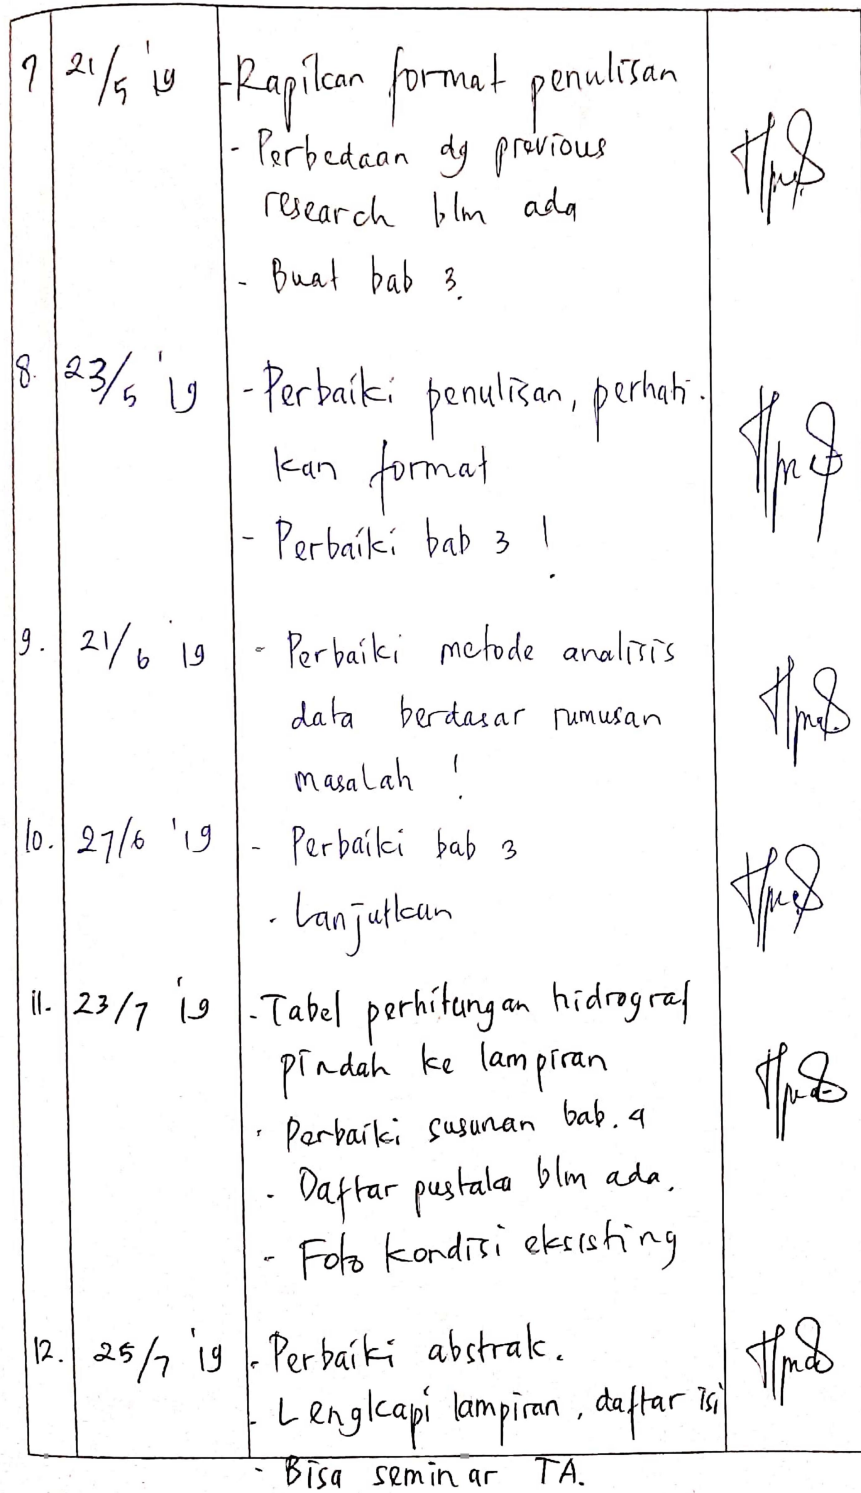 7 21/5 '19 - Rapikan format penulisan
- Perbedaan dg previous
research blm ada
- Buat bab 3.
8. 23/5 '19 - Perbaiki penulisan, perhati-
kan format
- Perbaiki bab 3 !
9. 21/6 '19 - Perbaiki metode analisis
data berdasar rumusan
masalah !
10. 27/6 '19 - Perbaiki bab 3
- Lanjutkan
11. 23/7 '19 - Tabel perhitungan hidrograf
pindah ke lampiran
- Perbaiki susunan bab. 4
- Daftar pustaka blm ada.
- Foto kondisi eksisting
12. 25/7 '19 - Perbaiki abstrak.
- Lengkapi lampiran, daftar isi
- Bisa seminar TA.